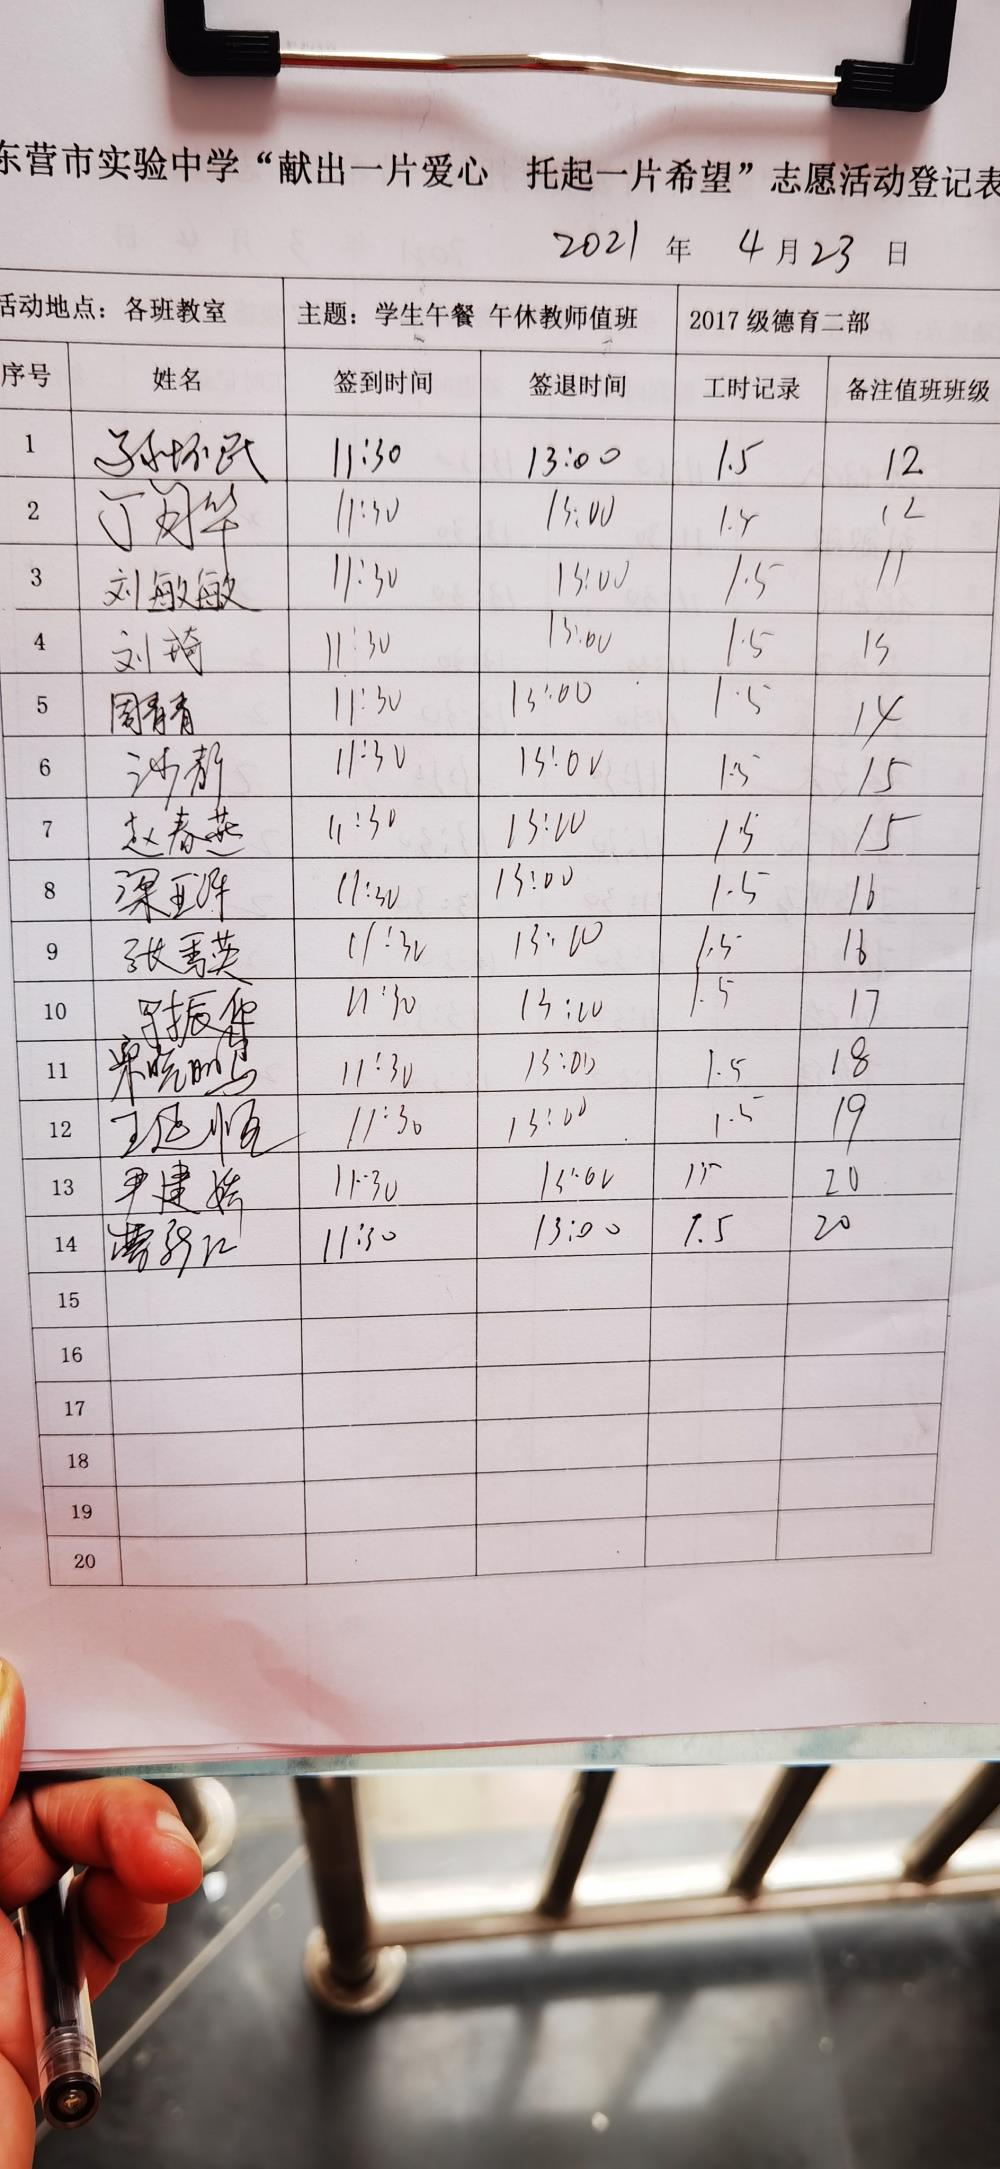 东营市实验中学“献出一片爱心 托起一片希望”志愿活动登记表
2021 年 4 月 23 日
活动地点：各班教室 主题：学生午餐 午休教师值班 2017 级德育二部
序号 姓名 签到时间 签退时间 工时记录 备注值班班级
1 孙怀民 11:30 13:00 1.5 12
2 11:30 13:00 1.5 12
3 刘敏敏 11:30 13:00 1.5 11
4 刘琦 11:30 13:00 1.5 13
5 周青青 11:30 13:00 1.5 14
6 沙静 11:30 13:00 1.5 15
7 赵春燕 11:30 13:00 1.5 15
8 11:30 13:00 1.5 16
9 11:30 13:00 1.5 16
10 11:30 13:00 1.5 17
11 11:30 13:00 1.5 18
12 11:30 13:00 1.5 19
13 11:30 13:00 1.5 20
14 11:30 13:00 1.5 20
15
16
17
18
19
20